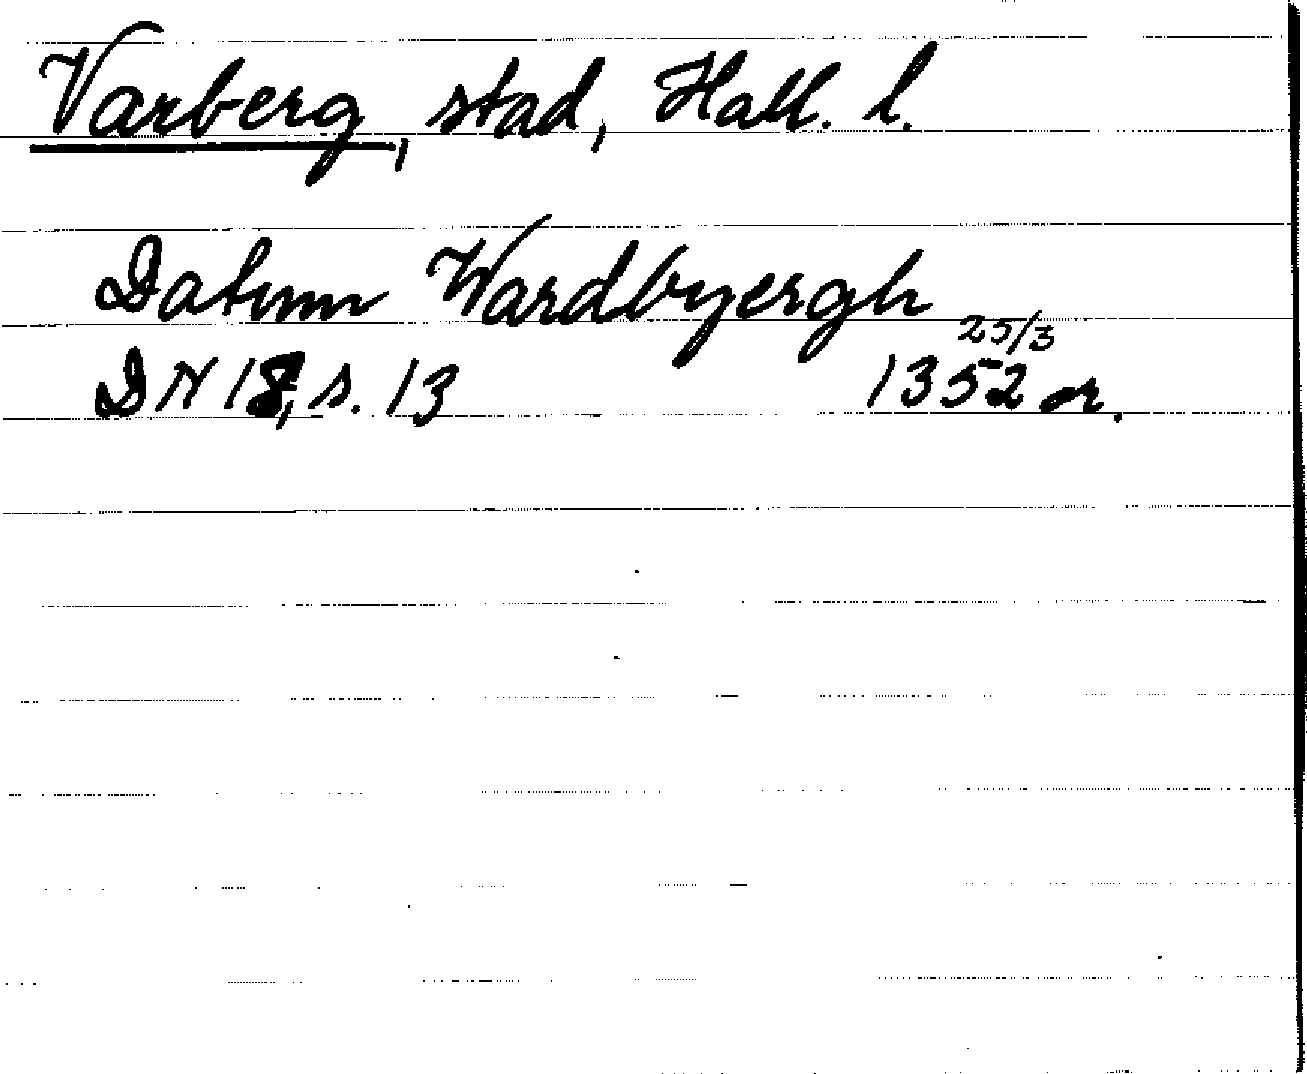 Varberg, stad, Hall. l.
Datum Wardbyergh
25/3
DN 18, s. 13 1352 or.